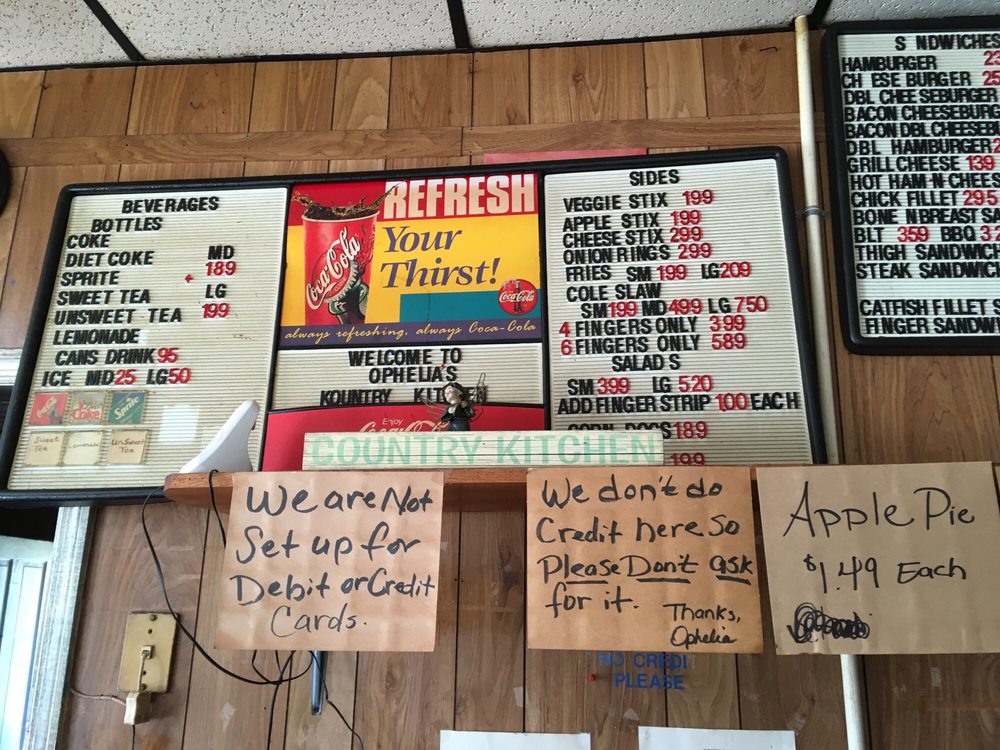 BEVERAGES
BOTTLES
COKE
DIET COKE MD
SPRITE 189
SWEET TEA LG
UNSWEET TEA 199
LEMONADE
CANS DRINK 95
ICE MD 25 LG 50
Coke
Sprite
Sweet Tea
Lemonade
UnSweet Tea
REFRESH
Your
Thirst!
Coca-Cola
Coca-Cola
always refreshing, always Coca-Cola
WELCOME TO
OPHELIA'S
KOUNTRY KITCHEN
Enjoy
COUNTRY KITCHEN
SIDES
VEGGIE STIX 199
APPLE STIX 199
CHEESE STIX 299
ONION RINGS 299
FRIES SM 199 LG 209
COLE SLAW
SM 199 MD 499 LG 750
4 FINGERS ONLY 399
6 FINGERS ONLY 589
SALAD S
SM 399 LG 520
ADD FINGER STRIP 1.00 EACH
CORN DOGS 189
199
S NDWICHES
HAMBURGER 23
CH ESE BURGER 25
DBL CHEESEBURGER
BACON CHEESEBURG
BACON DBL CHEESEB
DBL HAMBURGER 2
GRILL CHEESE 139
HOT HAM N CHEES
CHICK FILLET 295
BONE N BREAST SA
BLT 359 BBQ 32
THIGH SANDWICH
STEAK SANDWICH
CATFISH FILLET S
FINGER SANDWI
We are Not
Set up for
Debit or Credit
Cards.
We don't do
Credit here So
Please Don't ask
for it. Thanks,
Ophelia
Apple Pie
$1.49 Each
NO CREDI
PLEASE